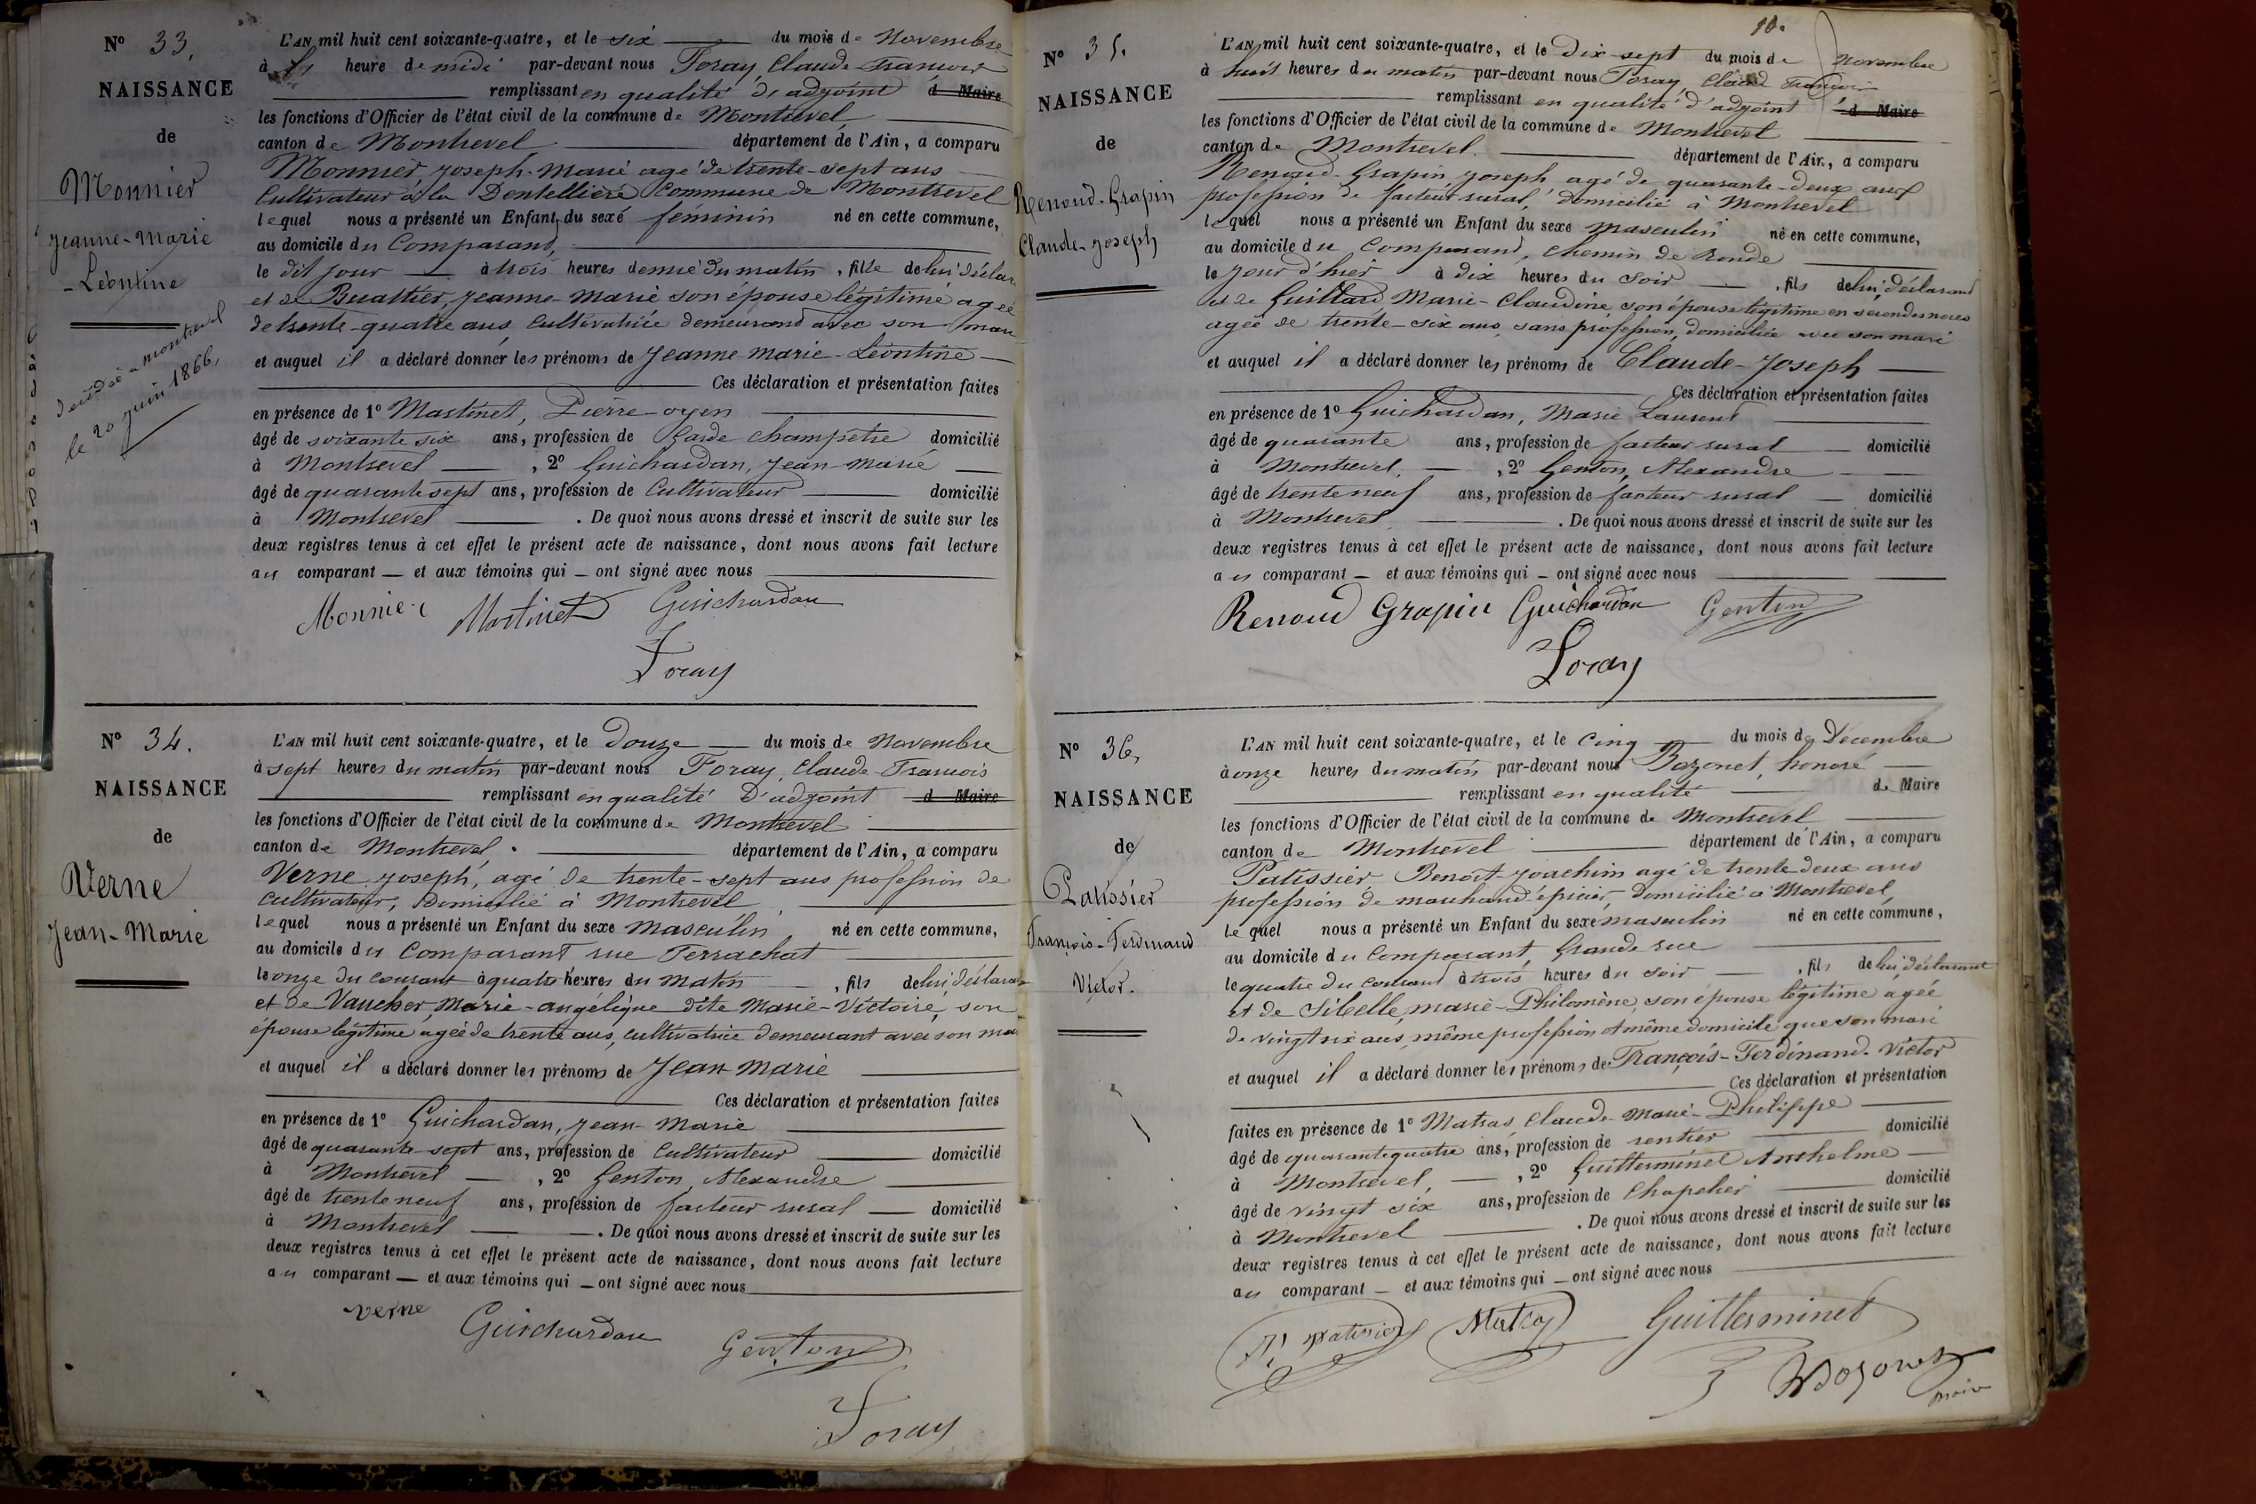 N° 33.
NAISSANCE
de
Monnier
Jeanne-Marie
-Léontine
décédée a montrevel
le 20 juin 1866,
L'AN mil huit cent soixante-quatre, et le six du mois de Novembre
à heure de midi par-devant nous Foray, Claude-François
remplissant en qualité d'adjoint d Maire
les fonctions d'Officier de l'état civil de la commune de Montrevel
canton de Montrevel département de l'Ain, a comparu
Monnier, Joseph-Marie agé de trente-sept ans
Cultivateur à la Dentellière Commune de Montrevel
lequel nous a présenté un Enfant du sexe féminin né en cette commune,
au domicile du Comparant,
le dit jour à trois heures demie du matin, fille de lui déclar
et de Buathier, Jeanne-Marie son épouse légitime agée
de trente-quatre ans, Cultivatrice demeurand avec son mari
et auquel il a déclaré donner les prénoms de Jeanne Marie-Léontine
Ces déclaration et présentation faites
en présence de 1° Martinet, Pierre-oyen
âgé de soixante six ans, profession de Garde champetre domicilié
à Montrevel, 2° Guichardan, Jean-Marie
âgé de quarante sept ans, profession de Cultivateur domicilié
à Montrevel. De quoi nous avons dressé et inscrit de suite sur les
deux registres tenus à cet effet le présent acte de naissance, dont nous avons fait lecture
au comparant et aux témoins qui ont signé avec nous
Monnier Martinet Guichardan
Foray
N° 34.
NAISSANCE
de
Verne
Jean-Marie
L'AN mil huit cent soixante-quatre, et le Douze du mois de Novembre
à sept heures du matin par-devant nous Foray, Claude-François
remplissant en qualité d'adjoint d Maire
les fonctions d'Officier de l'état civil de la commune de Montrevel
canton de Montrevel. département de l'Ain, a comparu
Verne Joseph, agé de trente-sept ans profession de
Cultivateur, Domicilié à Montrevel
lequel nous a présenté un Enfant du sexe masculin né en cette commune,
au domicile du Comparant rue Ferrachat
le onze du courant à quatre heures du matin, fils de lui déclarant
et de Vaucher, Marie-angélique dite Marie-Victoire, son
épouse légitime agée de trente ans, cultivatrice demeurant avec son mari
et auquel il a déclaré donner les prénoms de Jean Marie
Ces déclaration et présentation faites
en présence de 1° Guichardan, Jean-Marie
âgé de quarante-sept ans, profession de Cultivateur domicilié
à Montrevel, 2° Genton, Alexandre
âgé de trente neuf ans, profession de facteur rural domicilié
à Montrevel. De quoi nous avons dressé et inscrit de suite sur les
deux registres tenus à cet effet le présent acte de naissance, dont nous avons fait lecture
au comparant et aux témoins qui ont signé avec nous
verne Guichardan Genton
Foray
10.
N° 35.
NAISSANCE
de
Renoud-Grapin
Claude-Joseph
L'AN mil huit cent soixante-quatre, et le Dix-sept du mois de Novembre
à huit heures du matin par-devant nous Foray, Claude François
remplissant en qualité d'adjoint d Maire
les fonctions d'Officier de l'état civil de la commune de Montrevel
canton de Montrevel. département de l'Ain, a comparu
Renoud-Grapin Joseph agé de quarante-deux ans
profession de facteur rural, domicilié à Montrevel
lequel nous a présenté un Enfant du sexe masculin né en cette commune,
au domicile du Comparand, chemin de Ronde
le jour d'hier à dix heures du soir, fils de lui déclarand
et de Guillard Marie-Claudine, son épouse légitime en secondes noces
agée de trente-six ans, sans profession, domiciliée avec son mari
et auquel il a déclaré donner les prénoms de Claude-Joseph
Ces déclaration et présentation faites
en présence de 1° Guichardan, Marie Laurent
âgé de quarante ans, profession de facteur rural domicilié
à Montrevel., 2° Genton, Alexandre
âgé de trente neuf ans, profession de facteur rural domicilié
à Montrevel. De quoi nous avons dressé et inscrit de suite sur les
deux registres tenus à cet effet le présent acte de naissance, dont nous avons fait lecture
au comparant et aux témoins qui ont signé avec nous
Renoud Grapin Guichardan Genton
Foray
N° 36,
NAISSANCE
de
Patissier
François-Ferdinand
Victor.
L'AN mil huit cent soixante-quatre, et le Cinq du mois de Décembre
à onze heures du matin par-devant nous Bozonet, honoré
remplissant en qualité de Maire
les fonctions d'Officier de l'état civil de la commune de Montrevel
canton de Montrevel département de l'Ain, a comparu
Patissier Benoit-Joachim agé de trente deux ans
profession de marchand épicier, domicilié à Montrevel,
lequel nous a présenté un Enfant du sexe masculin né en cette commune,
au domicile du Comparant, Grande rue
le quatre du courant à trois heures du soir, fils de lui déclarant
et de Sibelle, Marie-Philomène, son épouse légitime agée
de vingt six ans, même profession et même domicile que son mari
et auquel il a déclaré donner les prénoms de François-Ferdinand-Victor
Ces déclaration et présentation
faites en présence de 1° Matras, Claude-Marie-Philippe
âgé de quarante quatre ans, profession de rentier domicilié
à Montrevel, 2° Guillerminet Anthelme
âgé de vingt six ans, profession de Chapelier domicilié
à Montrevel. De quoi nous avons dressé et inscrit de suite sur les
deux registres tenus à cet effet le présent acte de naissance, dont nous avons fait lecture
au comparant et aux témoins qui ont signé avec nous
Patissier Matras Guillerminet
Bozonet
maire